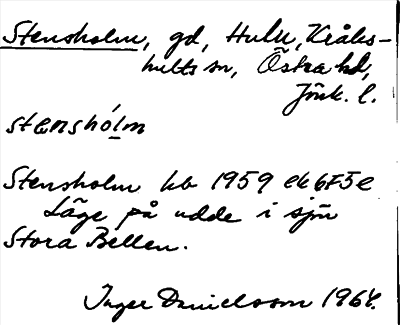 Stensholm, gd, Hult, Kråks-
hults sn, Östra hd,
Jönk. l.
stenshólm
Stensholm kb 1959 ek 6F5e
Läge på udde i sjön
Stora Bellen.
Inger Danielsson 1964.